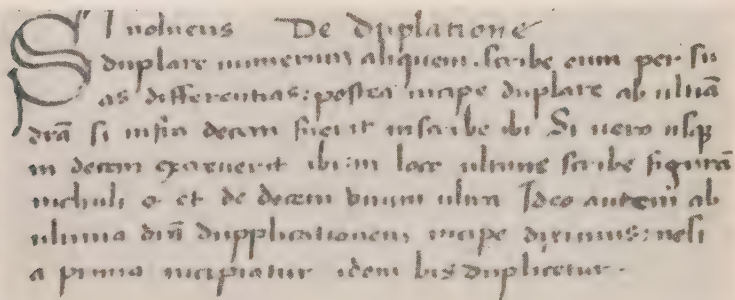 SI volueris De duplatione
duplare numerum aliquem. scribe eum per su
as differentias: postea incipe duplare ab ultiā
drā si infra decem fuerit inscribe ibi Si uero usq
in decem ibi in loco ultime scribe figurā
nichili o et de decem unum ultra Ideo autem ab
ultima drā dupplicationem incipe diximus: nesi
a prima incipiatur idem bis duplicetur.